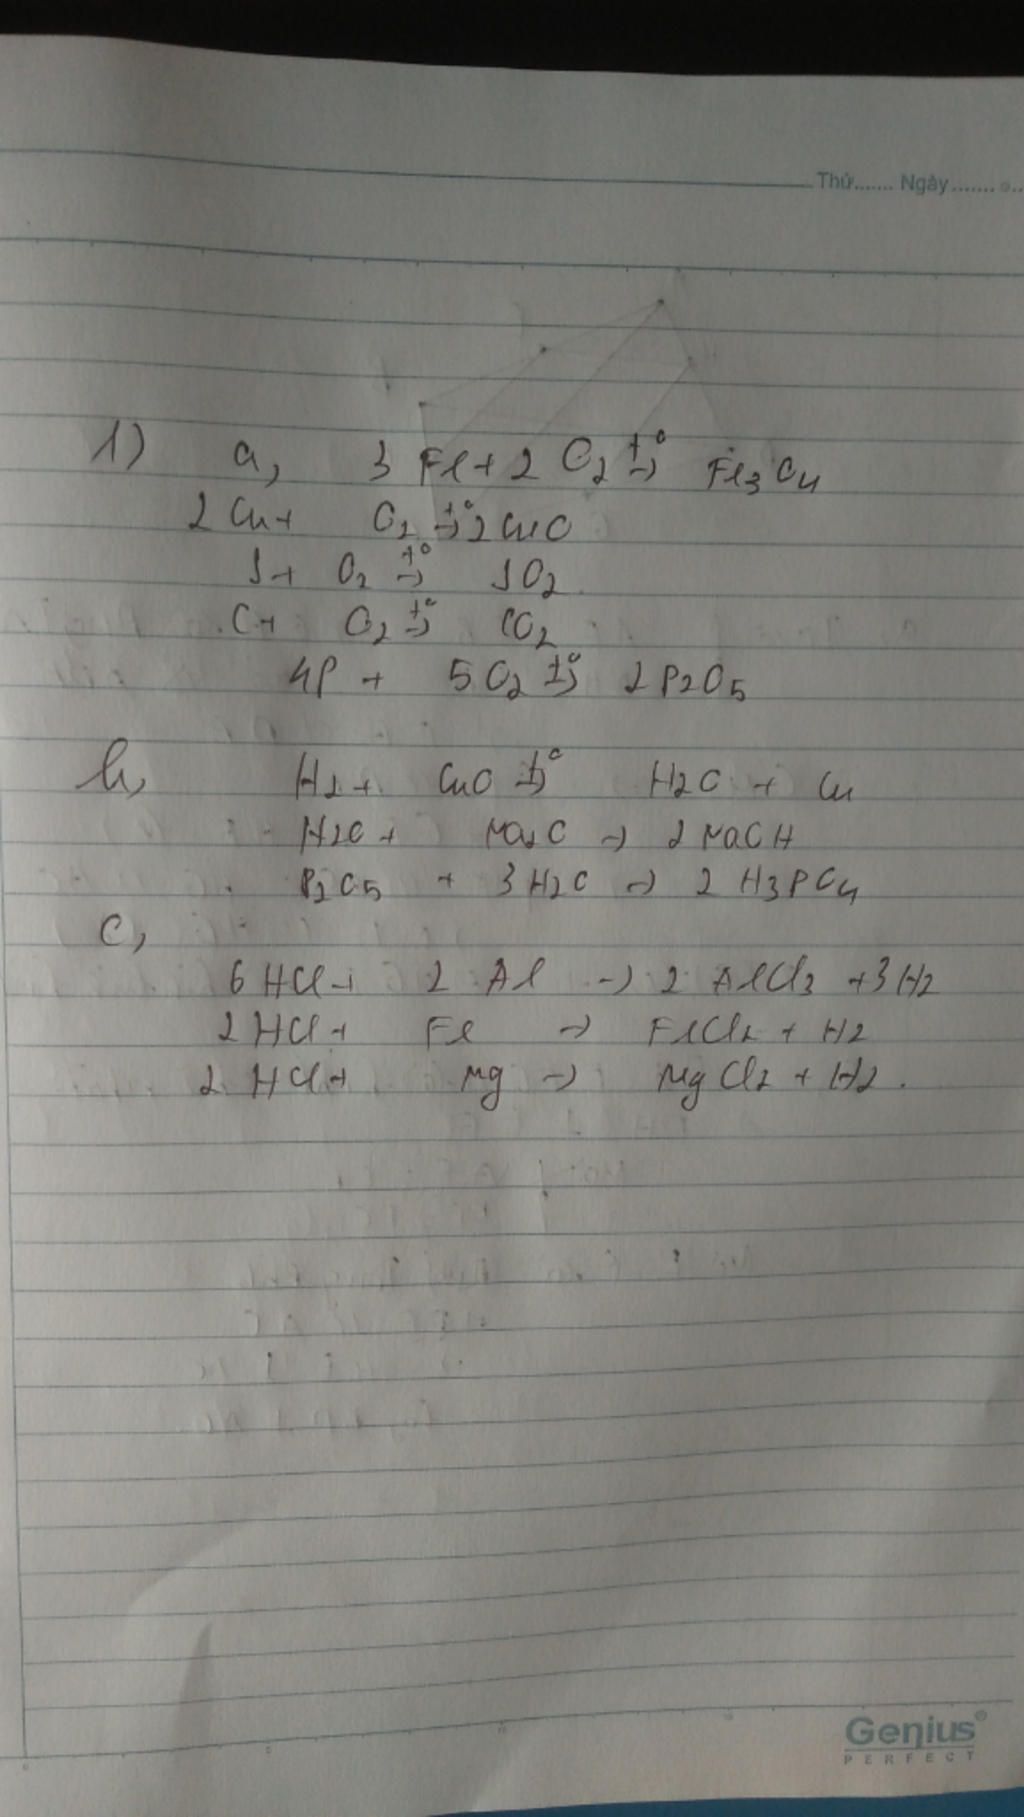 Thứ....... Ngày.......
1) a, 3 Fe + 2 O2 t°→ Fe3O4
2 Cu + O2 t°→ 2 CuO
S + O2 t°→ SO2
C + O2 t°→ CO2
4P + 5O2 t°→ 2 P2O5
b, H2 + CuO t°→ H2O + Cu
H2O + Na2O → 2 NaOH
P2O5 + 3 H2O → 2 H3PO4
c,
6 HCl + 2 Al → 2 AlCl3 + 3 H2
2 HCl + Fe → FeCl2 + H2
2 HCl + Mg → MgCl2 + H2.
Genius®
PERFECT